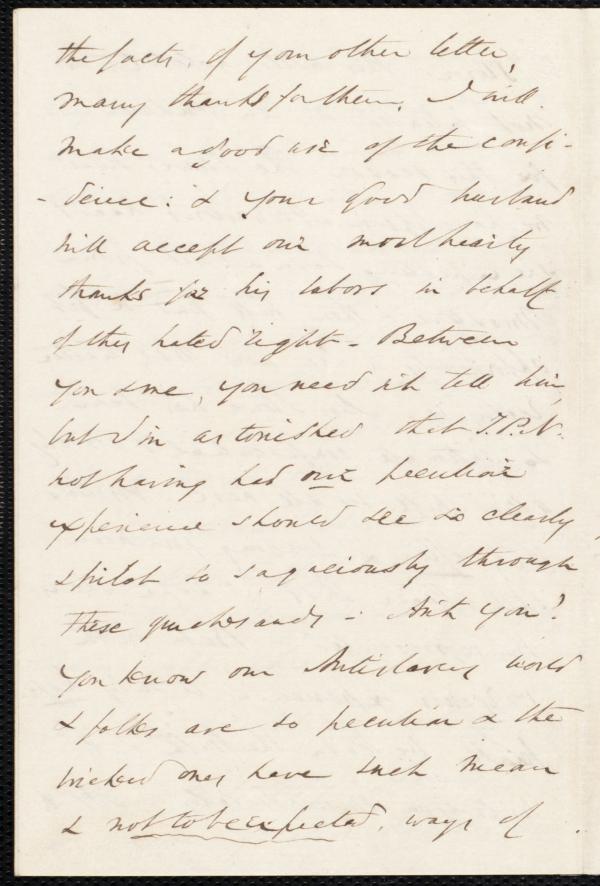 the facts, of your other letter,
many thanks for them. I will
make a good use of the confi-
-dence: & your good husband
will accept our most hearty
thanks for his labors in behalf
of this hated right - Between
you & me, you need n't tell him,
but I'm astonished that J.P.N.
not having had our peculiar
experience should see so clearly,
& pilot so sagaciously through
these quicksands - Ain't you?
You know our Antislavery world
& folks are so peculiar & the
wicked ones have such mean
& not to be expected, ways of